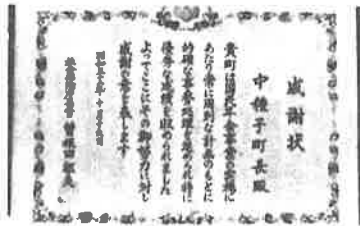 感謝状
中種子町長殿
貴町は国民年金事業の実施に
あたり常に周到な計画のもとに
的確な事務処理を進められ特に
優秀な成績を収められました
よってここにその御努力に対し
感謝の意を表します